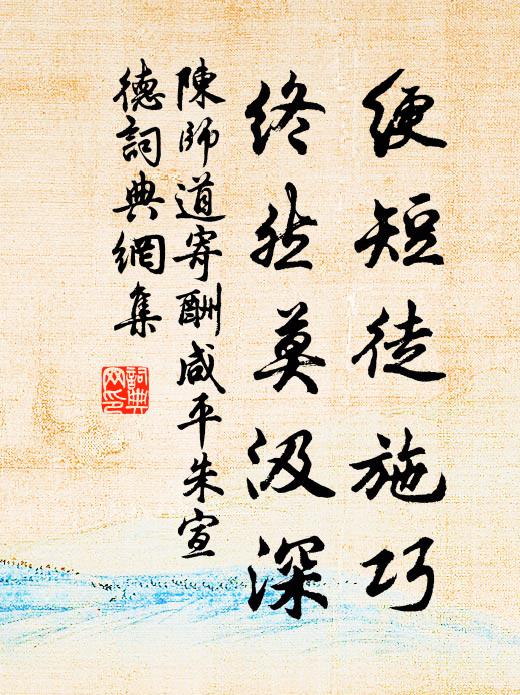 綆短徒施巧
終然莫汲深
陳師道寄酬咸平朱宣
德詞典網集
詞典
网印